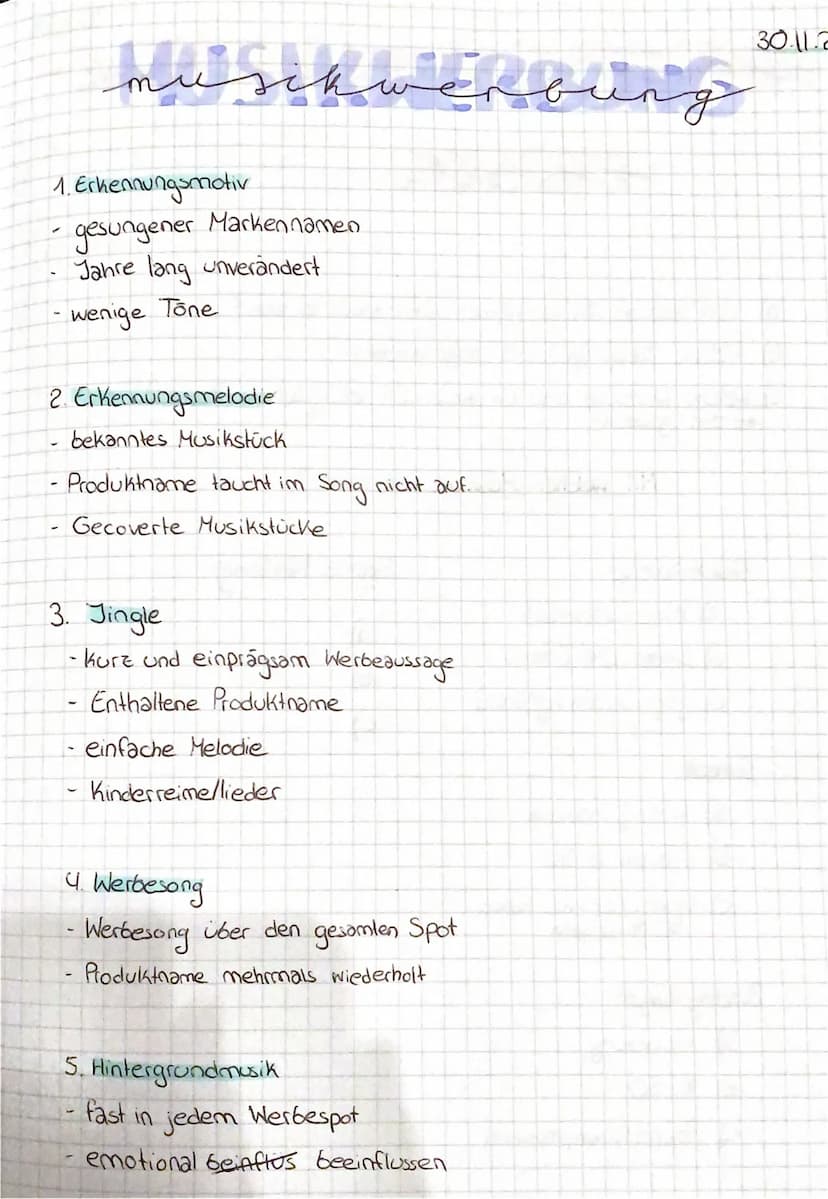 30.11.2
MUSIKWERBUNG
musikwerbung
1. Erkennungsmotiv
- gesungener Markennamen
- Jahre lang unverändert
- wenige Töne
2. Erkennungsmelodie
- bekanntes Musikstück
- Produktname taucht im Song nicht auf.
- Gecoverte Musikstücke
3. Jingle
- kurz und einprägsam Werbeaussage
- Enthaltene Produktname
- einfache Melodie
- Kinderreime/lieder
4. Werbesong
- Werbesong über den gesamten Spot
- Produktname mehrmals wiederholt
5. Hintergrundmusik
- fast in jedem Werbespot
- emotional beinflus beeinflussen